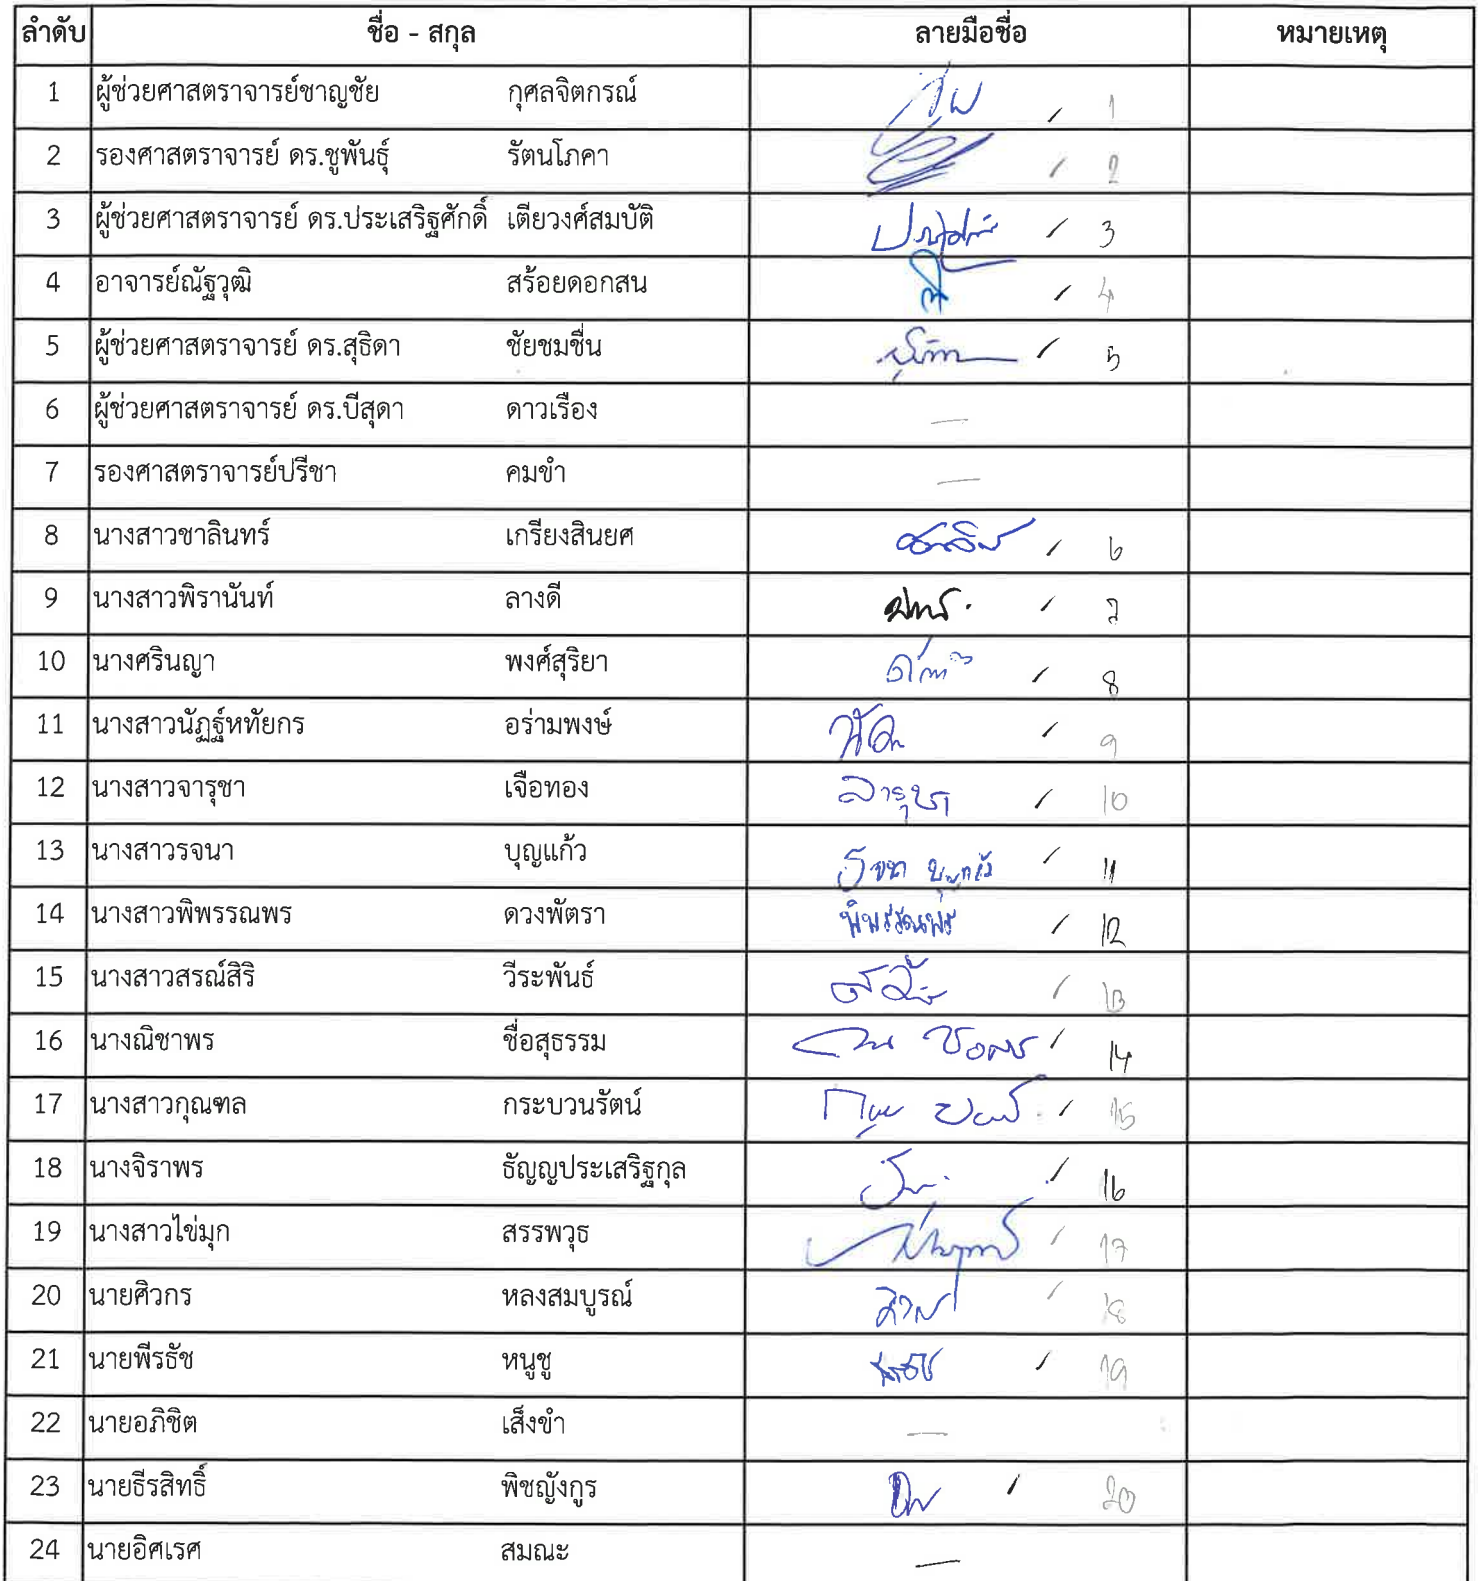 ลำดับ ชื่อ - สกุล ลายมือชื่อ หมายเหตุ
1 ผู้ช่วยศาสตราจารย์ชาญชัย กุศลจิตกรณ์ / 1
2 รองศาสตราจารย์ ดร.ชูพันธุ์ รัตนโภคา / 2
3 ผู้ช่วยศาสตราจารย์ ดร.ประเสริฐศักดิ์ เตียวงศ์สมบัติ / 3
4 อาจารย์ณัฐวุฒิ สร้อยดอกสน / 4
5 ผู้ช่วยศาสตราจารย์ ดร.สุธิดา ชัยชมชื่น / 5
6 ผู้ช่วยศาสตราจารย์ ดร.บีสุดา ดาวเรือง —
7 รองศาสตราจารย์ปรีชา คมขำ —
8 นางสาวชาลินทร์ เกรียงสินยศ / 6
9 นางสาวพิรานันท์ ลางดี / 7
10 นางศรินญา พงศ์สุริยา / 8
11 นางสาวนัฏฐ์หทัยกร อร่ามพงษ์ / 9
12 นางสาวจารุชา เจือทอง จารุชา / 10
13 นางสาวรจนา บุญแก้ว รจนา บุญแก้ว / 11
14 นางสาวพิพรรณพร ดวงพัตรา พิพรรณพร / 12
15 นางสาวสรณ์สิริ วีระพันธ์ / 13
16 นางณิชาพร ชื่อสุธรรม / 14
17 นางสาวกุณฑล กระบวนรัตน์ / 15
18 นางจิราพร ธัญญประเสริฐกุล / 16
19 นางสาวไข่มุก สรรพวุธ / 17
20 นายศิวกร หลงสมบูรณ์ / 18
21 นายพีรธัช หนูชู / 19
22 นายอภิชิต เส็งขำ —
23 นายธีรสิทธิ์ พิชญังกูร / 20
24 นายอิศเรศ สมณะ —